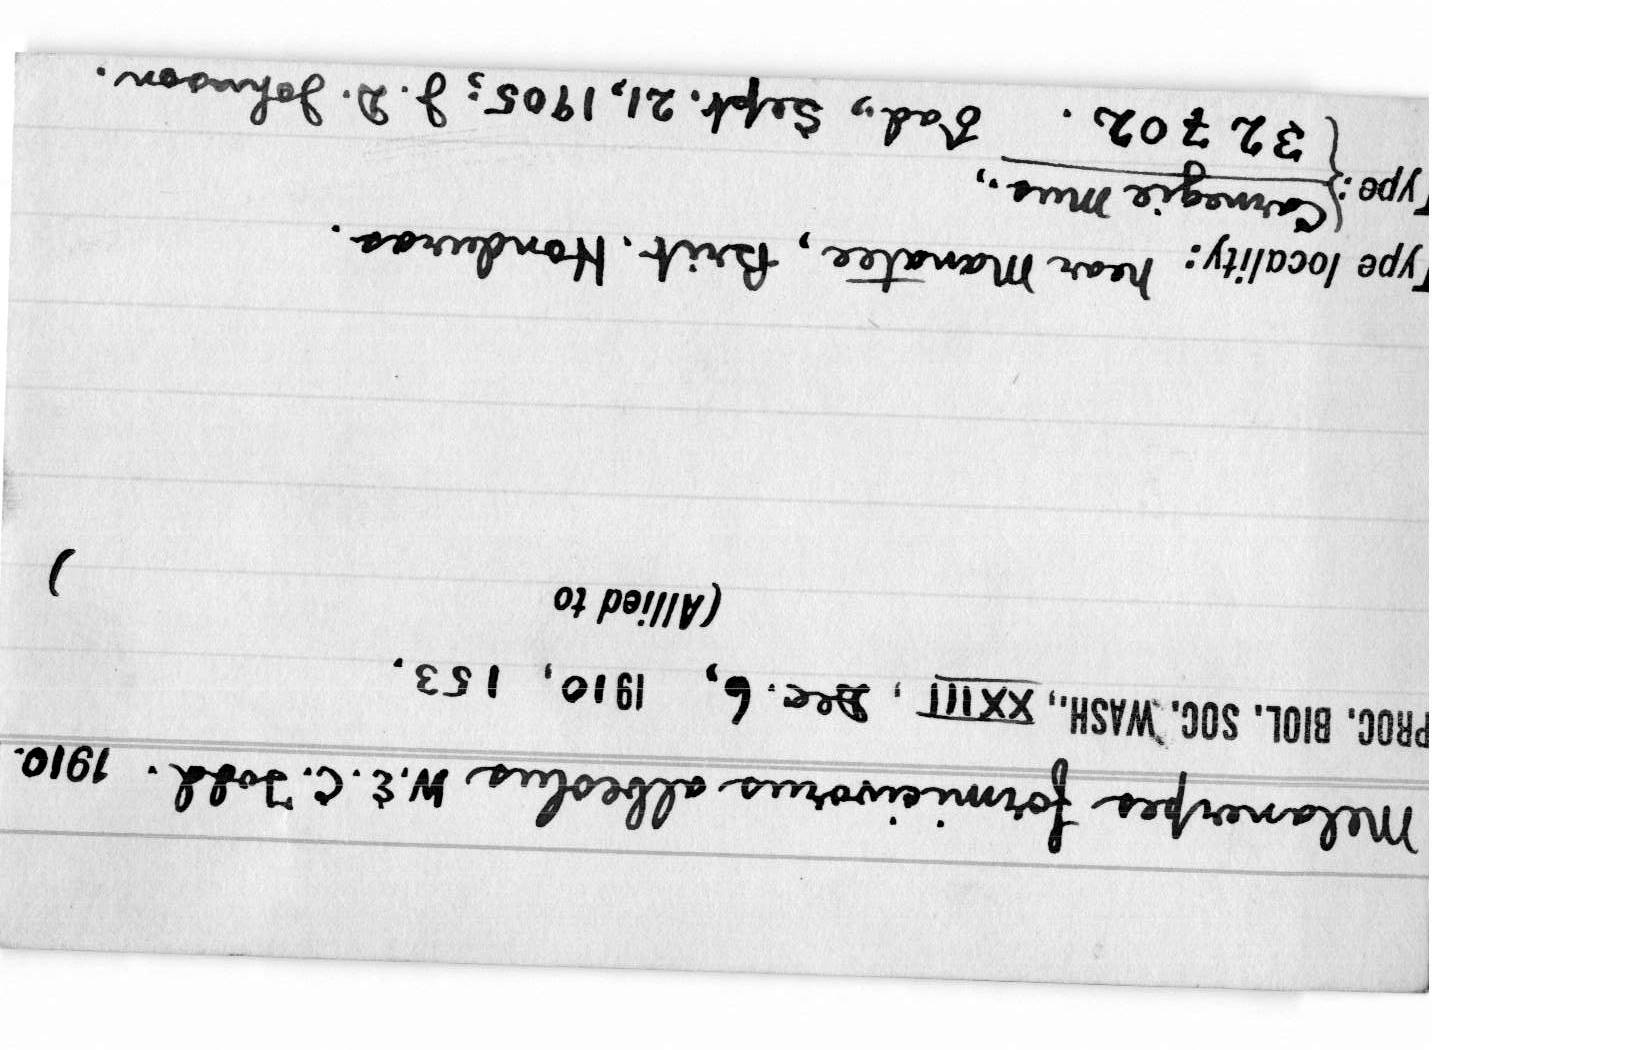 Melanerpes formicivorus albeolus W.E.C. Todd. 1910.
PROC. BIOL. SOC. WASH., XXIII, Dec. 6, 1910, 153.
(Allied to )
Type locality: near Manatee, Brit. Honduras.
Type: {Carnegie Mus.,
{32702. ♂ad., Sept. 21, 1905; J. D. Johnson.